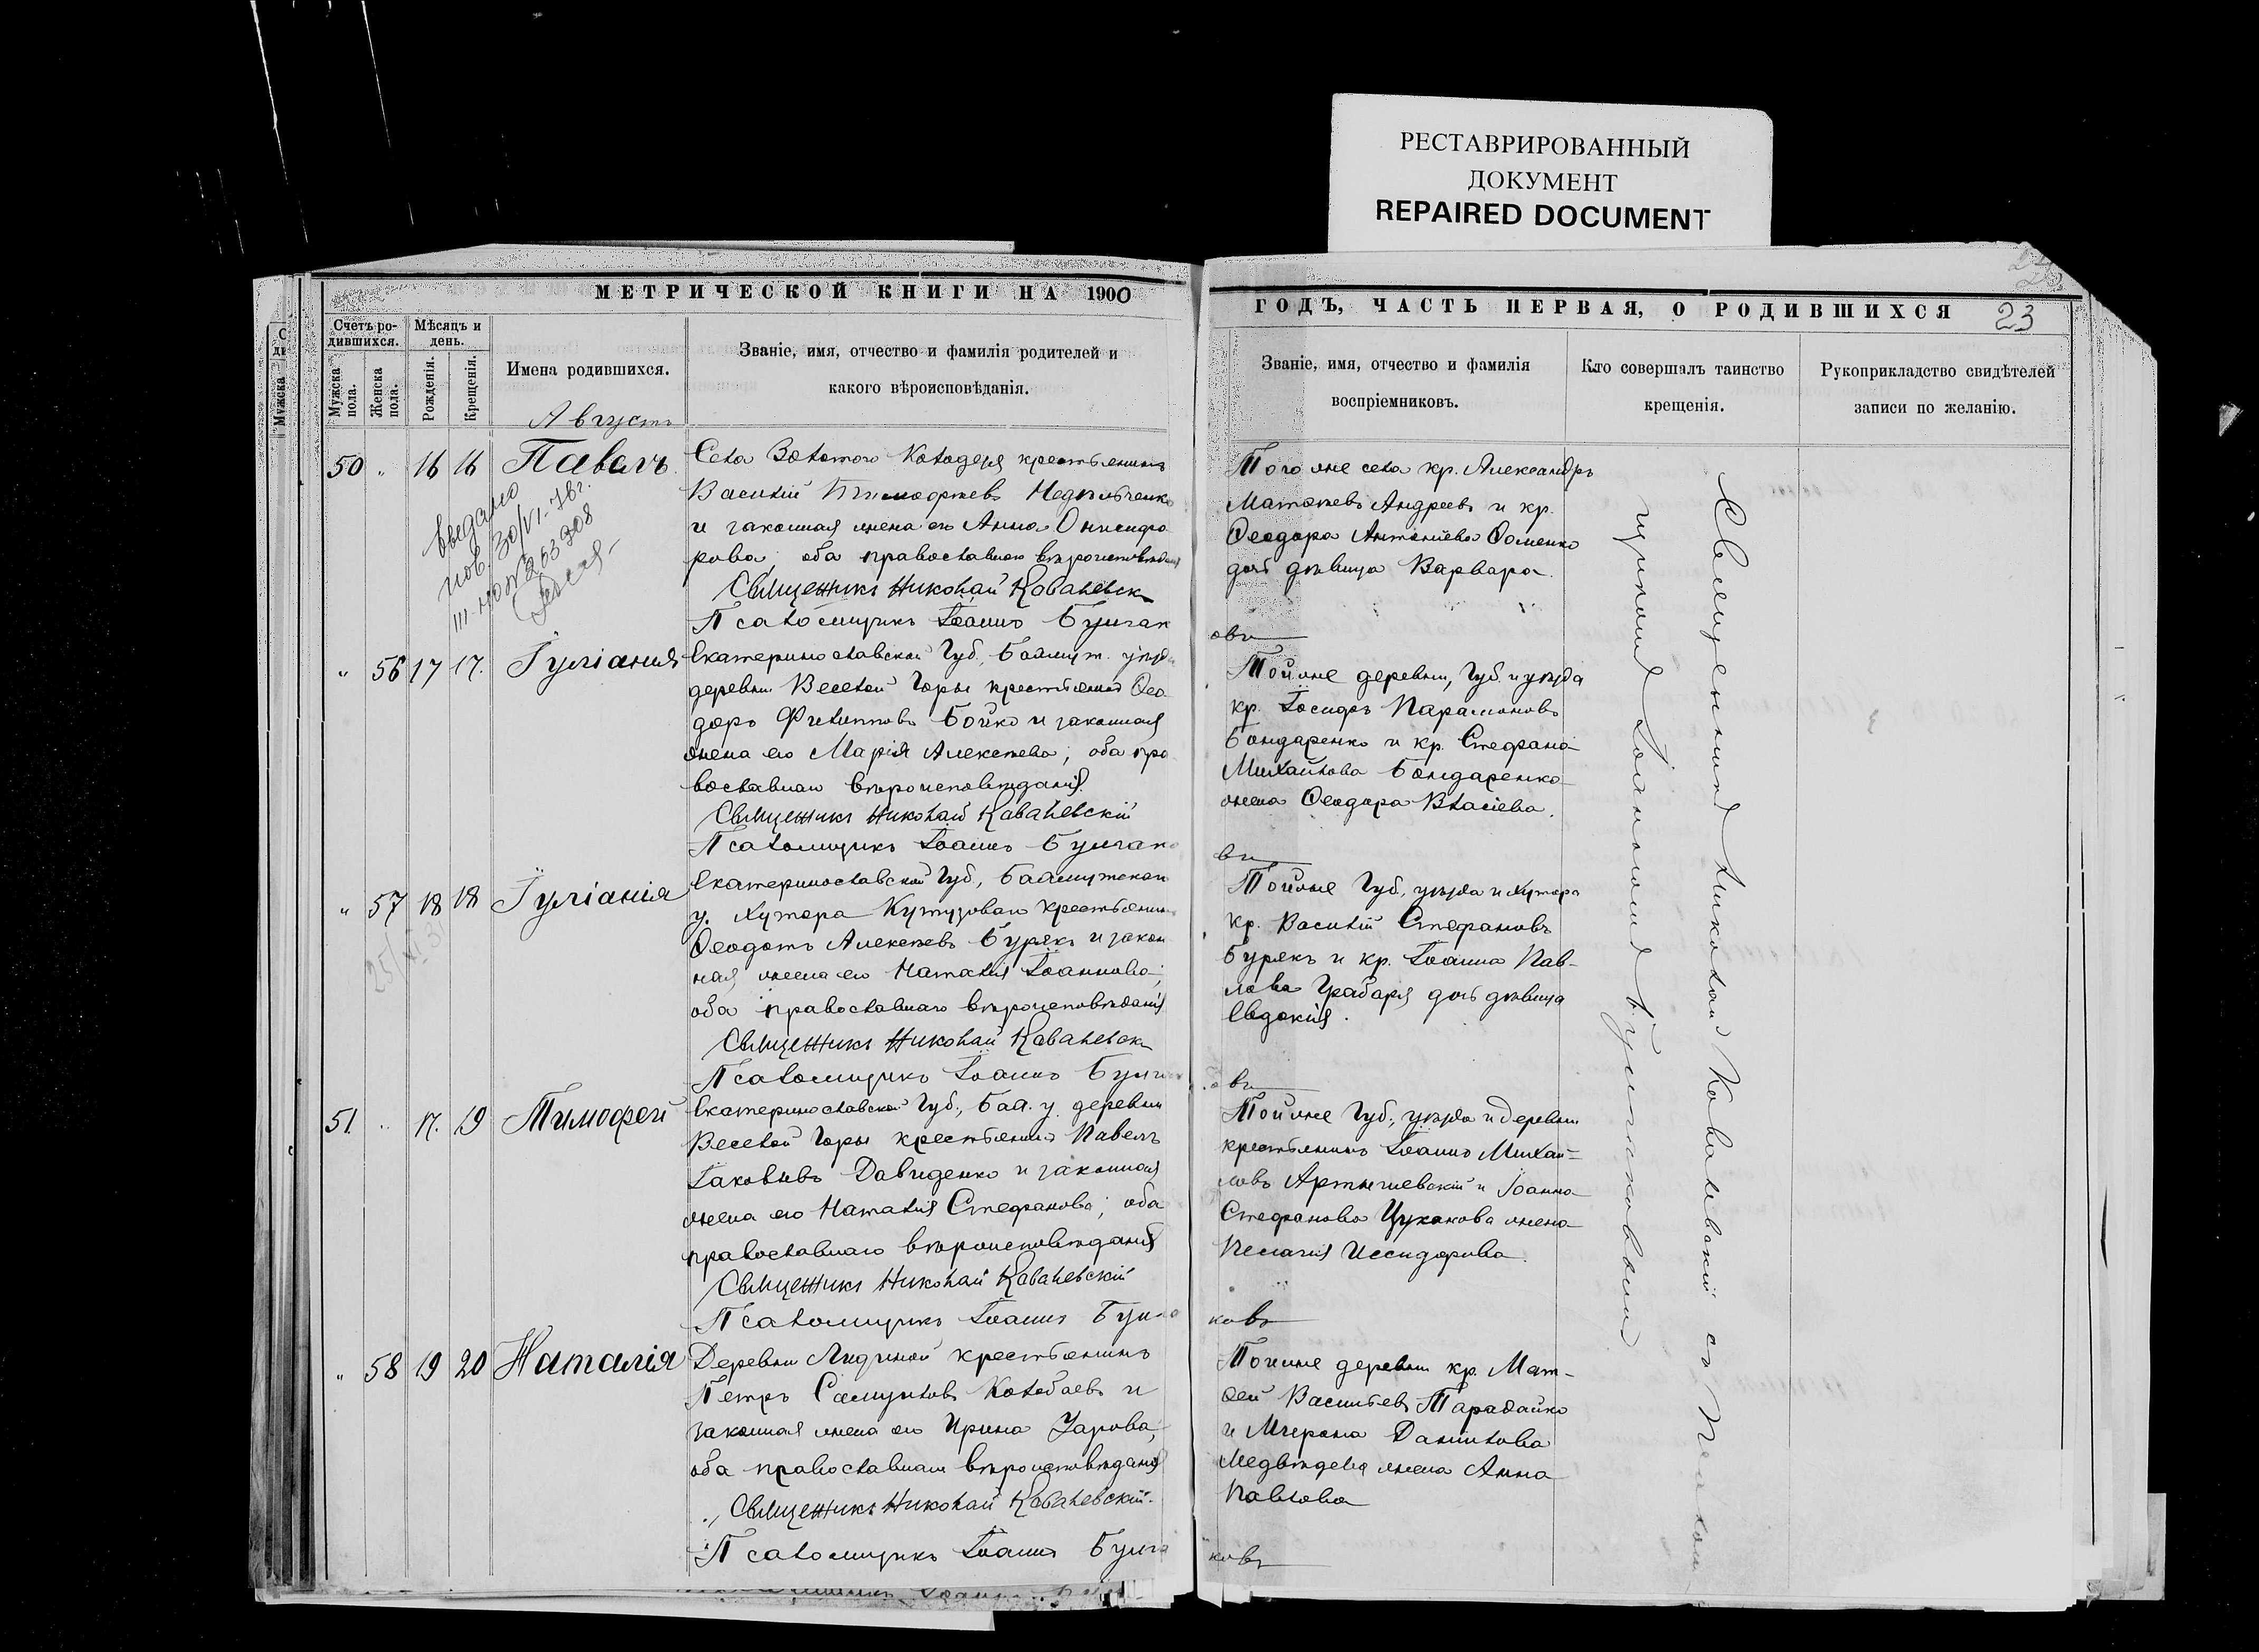 РЕСТАВРИРОВАННЫЙ
ДОКУМЕНТ
REPAIRED DOCUMENT
МЕТРИЧЕСКОЙ КНИГИ НА 1900
Счетъ ро-
дившихся.
Мужска
пола.
Женска
пола.
Мѣсяцъ и
день.
Рожденія.
Крещенія.
Имена родившихся.
Августъ
Званіе, имя, отчество и фамилія родителей и
какого вѣроисповѣданія.
50 " 16 16 Павелъ
Села Золотого Колодезя крестьянинъ
Василій Тимофеевъ
и законная жена его Анна Онисифо
рова, оба православнаго вѣроисповѣданія
Священникъ Николай Ковалевск
Псаломщикъ Іоаннъ Булгак
" 56 17 17. Іуліанія
Екатеринославской Губ., Бахмут. уѣзда
деревни Веселой Горы крестьянинъ Ѳео
доръ Филипповъ Бойко и законная
жена его Марія Алексѣева; оба пра
вославнаго вѣроисповѣданія.
Священникъ Николай Ковалевскій
Псаломщикъ Іоаннъ Булгако
" 57 18 18 Іуліанія
Екатеринославской Губ., Бахмутскаго
у. Хутора Кутузоваго крестьянинъ
Ѳеодотъ Алексѣевъ Бурякъ и закон
ная жена его Наталія Іоаннова;
оба православнаго вѣроисповѣданія
Священникъ Николай Ковалевск
Псаломщикъ Іоаннъ Булга
51. " 17. 19 Тимофей
Екатеринославской Губ., Бах. у. деревни
Веселой Горы крестьянинъ Павелъ
Іаковлевъ Давиденко и законная
жена его Наталія Стефанова; оба
православнаго вѣроисповѣданія
Священникъ Николай Ковалевскій
Псаломщикъ Іоаннъ Булга
" 58 19 20 Наталія
Деревни Лидиной крестьянинъ
Петръ Самуиловъ Колобаевъ и
законная жена его Ирина Уарова,
оба православнаго вѣроисповѣданія
Священникъ Николай Ковалевскій.
Псаломщикъ Іоаннъ Булга
ГОДЪ, ЧАСТЬ ПЕРВАЯ, О РОДИВШИХСЯ 23
Званіе, имя, отчество и фамилія
воспріемниковъ.
Кто совершалъ таинство
крещенія.
Рукоприкладство свидѣтелей
записи по желанію.
Того же села кр. Александръ
Матѳѣевъ Андреевъ и кр.
Ѳеодора Антоніева Ѳоменко
дочь дѣвица Варвара.
овъ
Той же деревни, Губ. и уѣзда
кр. Іосифъ Парамоновъ
Бондаренко и кр. Стефана
Михайлова Бондаренко
жена Ѳеодора Власіева.
въ
Той же Губ., уѣзда и хутора
кр. Василій Стефановъ
Бурякъ и кр. Іоанна Пав-
лова Грабаря дочь дѣвица
Евдокія.
овъ
Той же Губ., уѣзда и деревни
крестьянинъ Іоаннъ Михай-
ловъ и Іоанна
Стефанова Цуканова жена
Пелагія Исидорова.
ковъ
Той же деревни кр. Мат-
ѳей Васильевъ Тарадайко
и Данилова
Медвѣдева жена Анна
Павлова
ковъ
Священникъ Николай Ковалевскій съ Псалом
щикомъ Іоанномъ Булгаковымъ